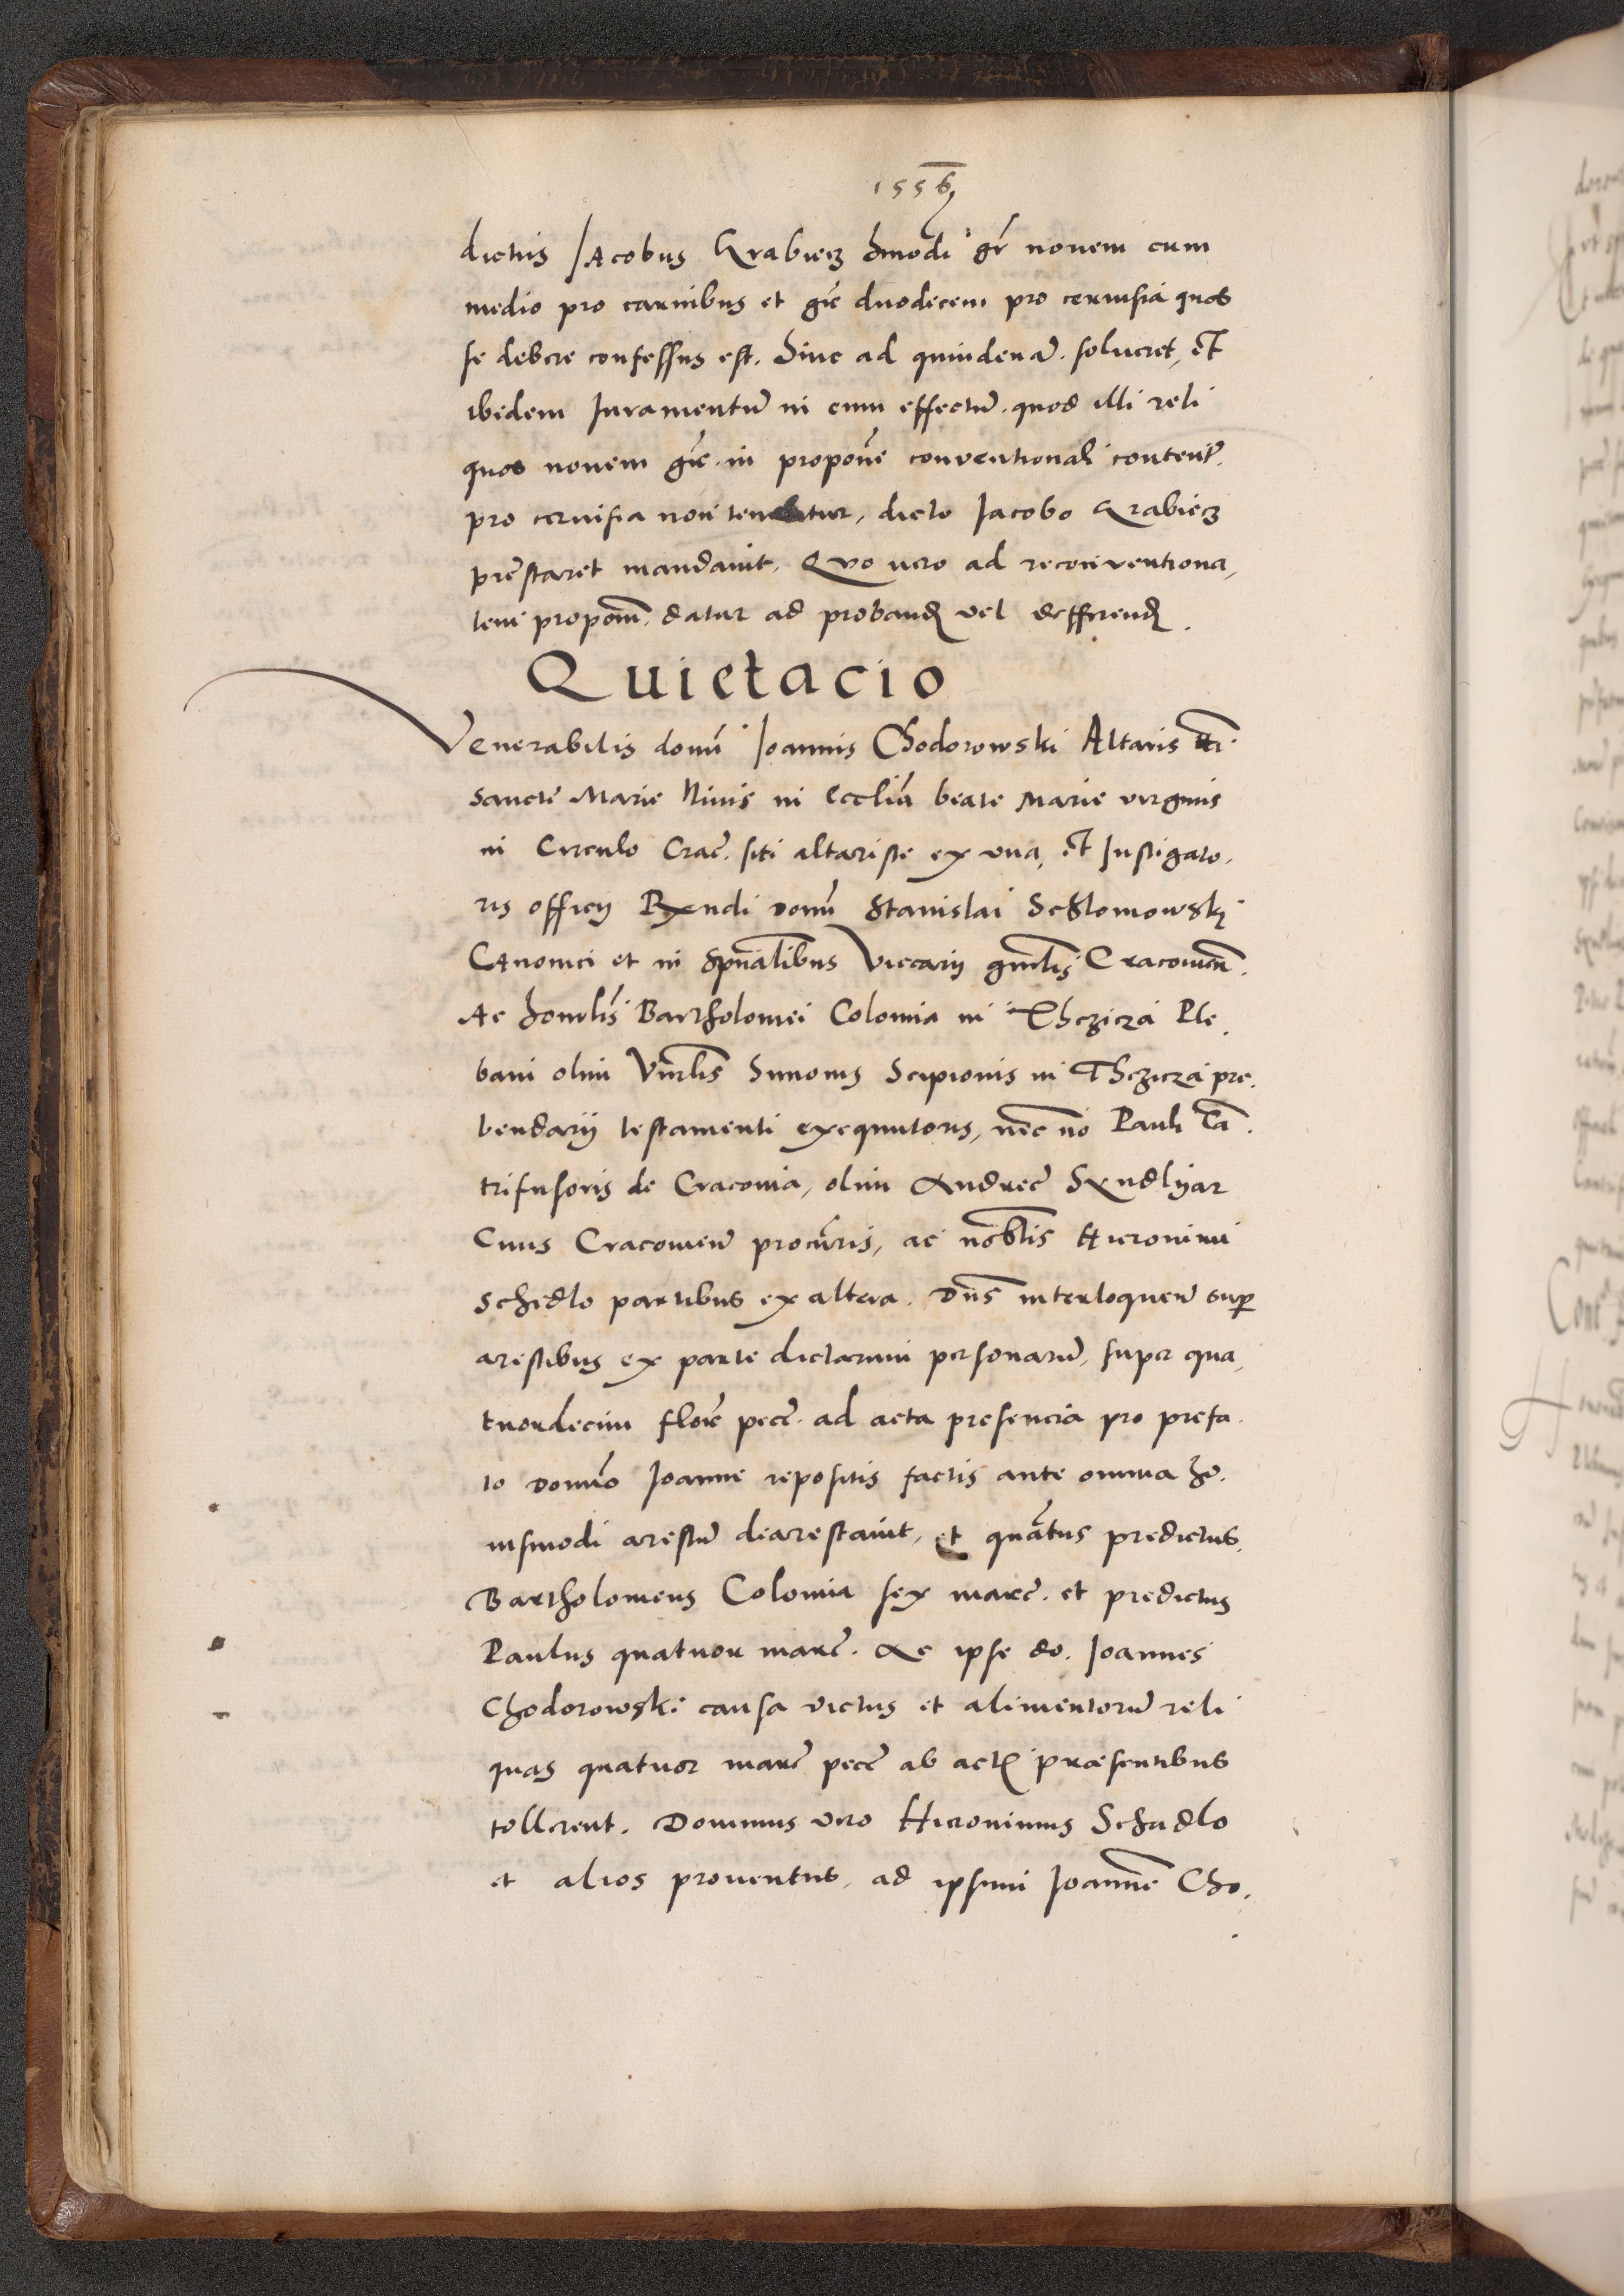 1556
dictus Jacobus Krabicz hmodi gr novem cum
medio pro carnibus et grc duodecem pro cervisia quos
se debere confessus est. hinc ad quindenā. solveret, et
ibidem Juramentū in eum effectū. quod illi reli
quos novem grc. in propone conventionali content.
pro cervisia non tenebatur, dicto Jacobo Krabicz
prestaret mandavit. Quo vero ad reconventiona,
lem proponm. datur ad proband vel defferend.
Quietacio
Venerabilis domi Joannis Chodorowski Altaris tti
sancte Marie Nivis in Ecclia beate Marie virginis
in Circulo Crac. siti altariste ex una, et Instigato.
ris officy Rxndi domi Stanislai Schlomowsky
Canonici et in spualibus Vicarij gnrlis Cracovien.
Ac honrlis Bartholomei Colomia in Thczicza Ple.
bani olim Vnrlis Simonis Scipionis in Thczicza pre.
bendarij testamenti exequutoris, nec nō Pauli Cā.
trifusoris de Cracovia, olim Andree Sendlyar
Civis Cracovien procuris, ac nobilis Hieronimi
Schedlo partibus ex altera. Dns interloquen sup
arestibus ex parte dictarum personarū, super qua,
tuordecim flore pecc. ad acta presencia pro prefa.
to domno Joanne repositis factis ante omnia ho.
iusmodi arestū dearestavit, et quātus predictus.
Bartholomeus Colomia sex marc. et predictus
Paulus quatuor marc. Ac ipse do. Joannes
Chodorowski causa victus et alimentorū reli
quas quatuor marc pecc ab actis praesentibus
tollerent. Dominus vero Hieronimus Schadlo
et alios proventus, ad ipsum Joannē Cho,